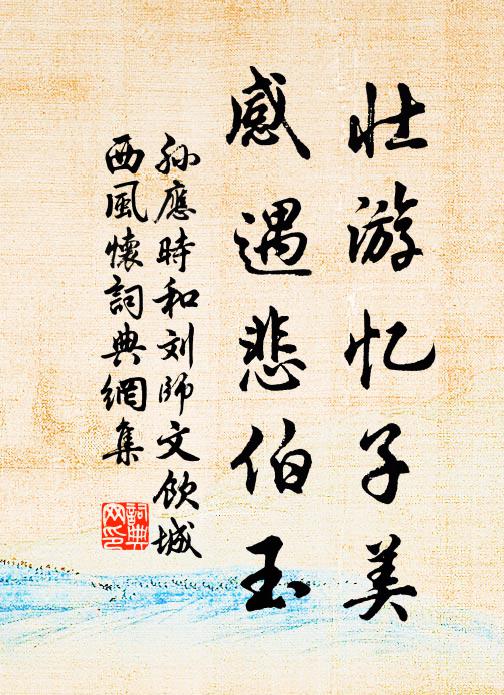 壮游忆子美
感遇悲伯玉
孙應時和刘師文飲城
西風懷詞典網集
詞典
网印